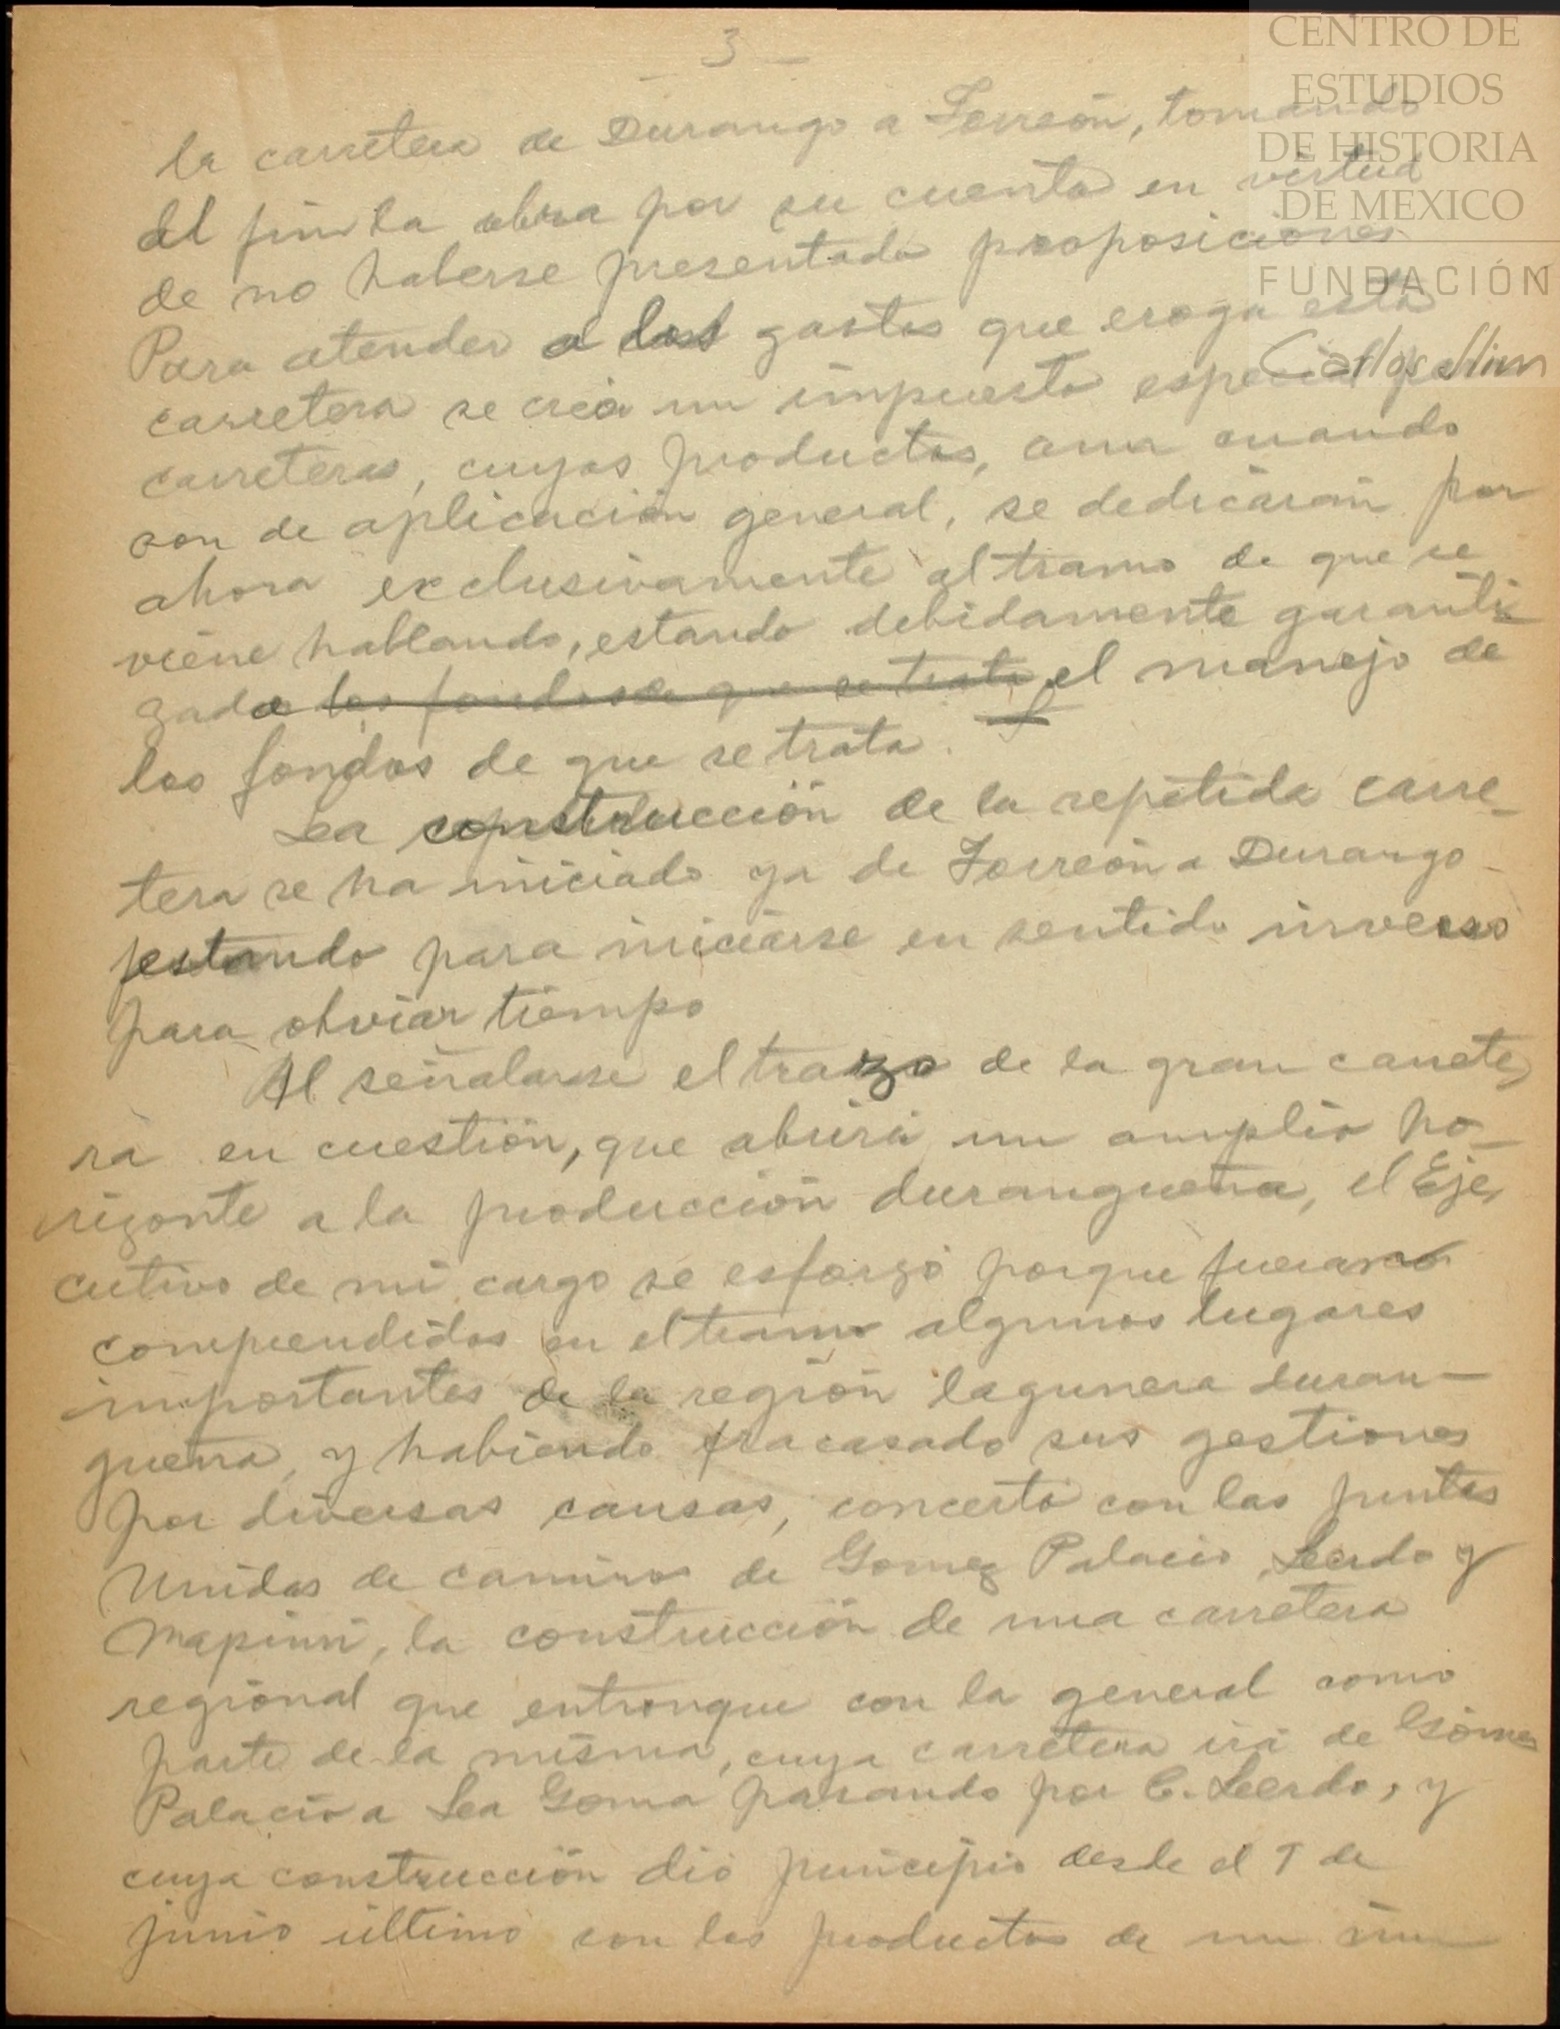 - 3 -
CENTRO DE
ESTUDIOS
DE HISTORIA
DE MEXICO
FUNDACIÓN
Carlos Slim
la carretera de Durango a Torreón, tomando
al fin la obra por su cuenta en virtud
de no haberse presentado proposiciones
Para atender a los gastos que eroga esta
carretera se creó un impuesto especial
carreteras, cuyos productos, aun cuando
son de aplicación general, se dedicarán por
ahora exclusivamente al tramo de que se
viene hablando, estando debidamente garanti-
zado los fondos de que se trata el manejo de
los fondos de que se trata.
La construcción de la repetida carre-
tera se ha iniciado ya de Torreón a Durango
estando para iniciarse en sentido inverso
para obviar tiempo
Al señalarse el trazo de la gran carrete-
ra en cuestión, que abrirá un amplio ho-
rizonte a la producción durangueña, el Eje-
cutivo de mi cargo se esforzó porque fueran
comprendidos en el tramo algunos lugares
importantes de la región lagunera duran-
gueña, y habiendo fracasado sus gestiones
por diversas causas, concertó con las juntas
Unidas de caminos de Gomez Palacio, Lerdo y
Mapimí, la construcción de una carretera
regional que entronque con la general como
parte de la misma, cuya carretera irá de Gómez
Palacio a La Goma pasando por C. Lerdo, y
cuya construcción dió principio desde el 7 de
junio último con los productos de un im-